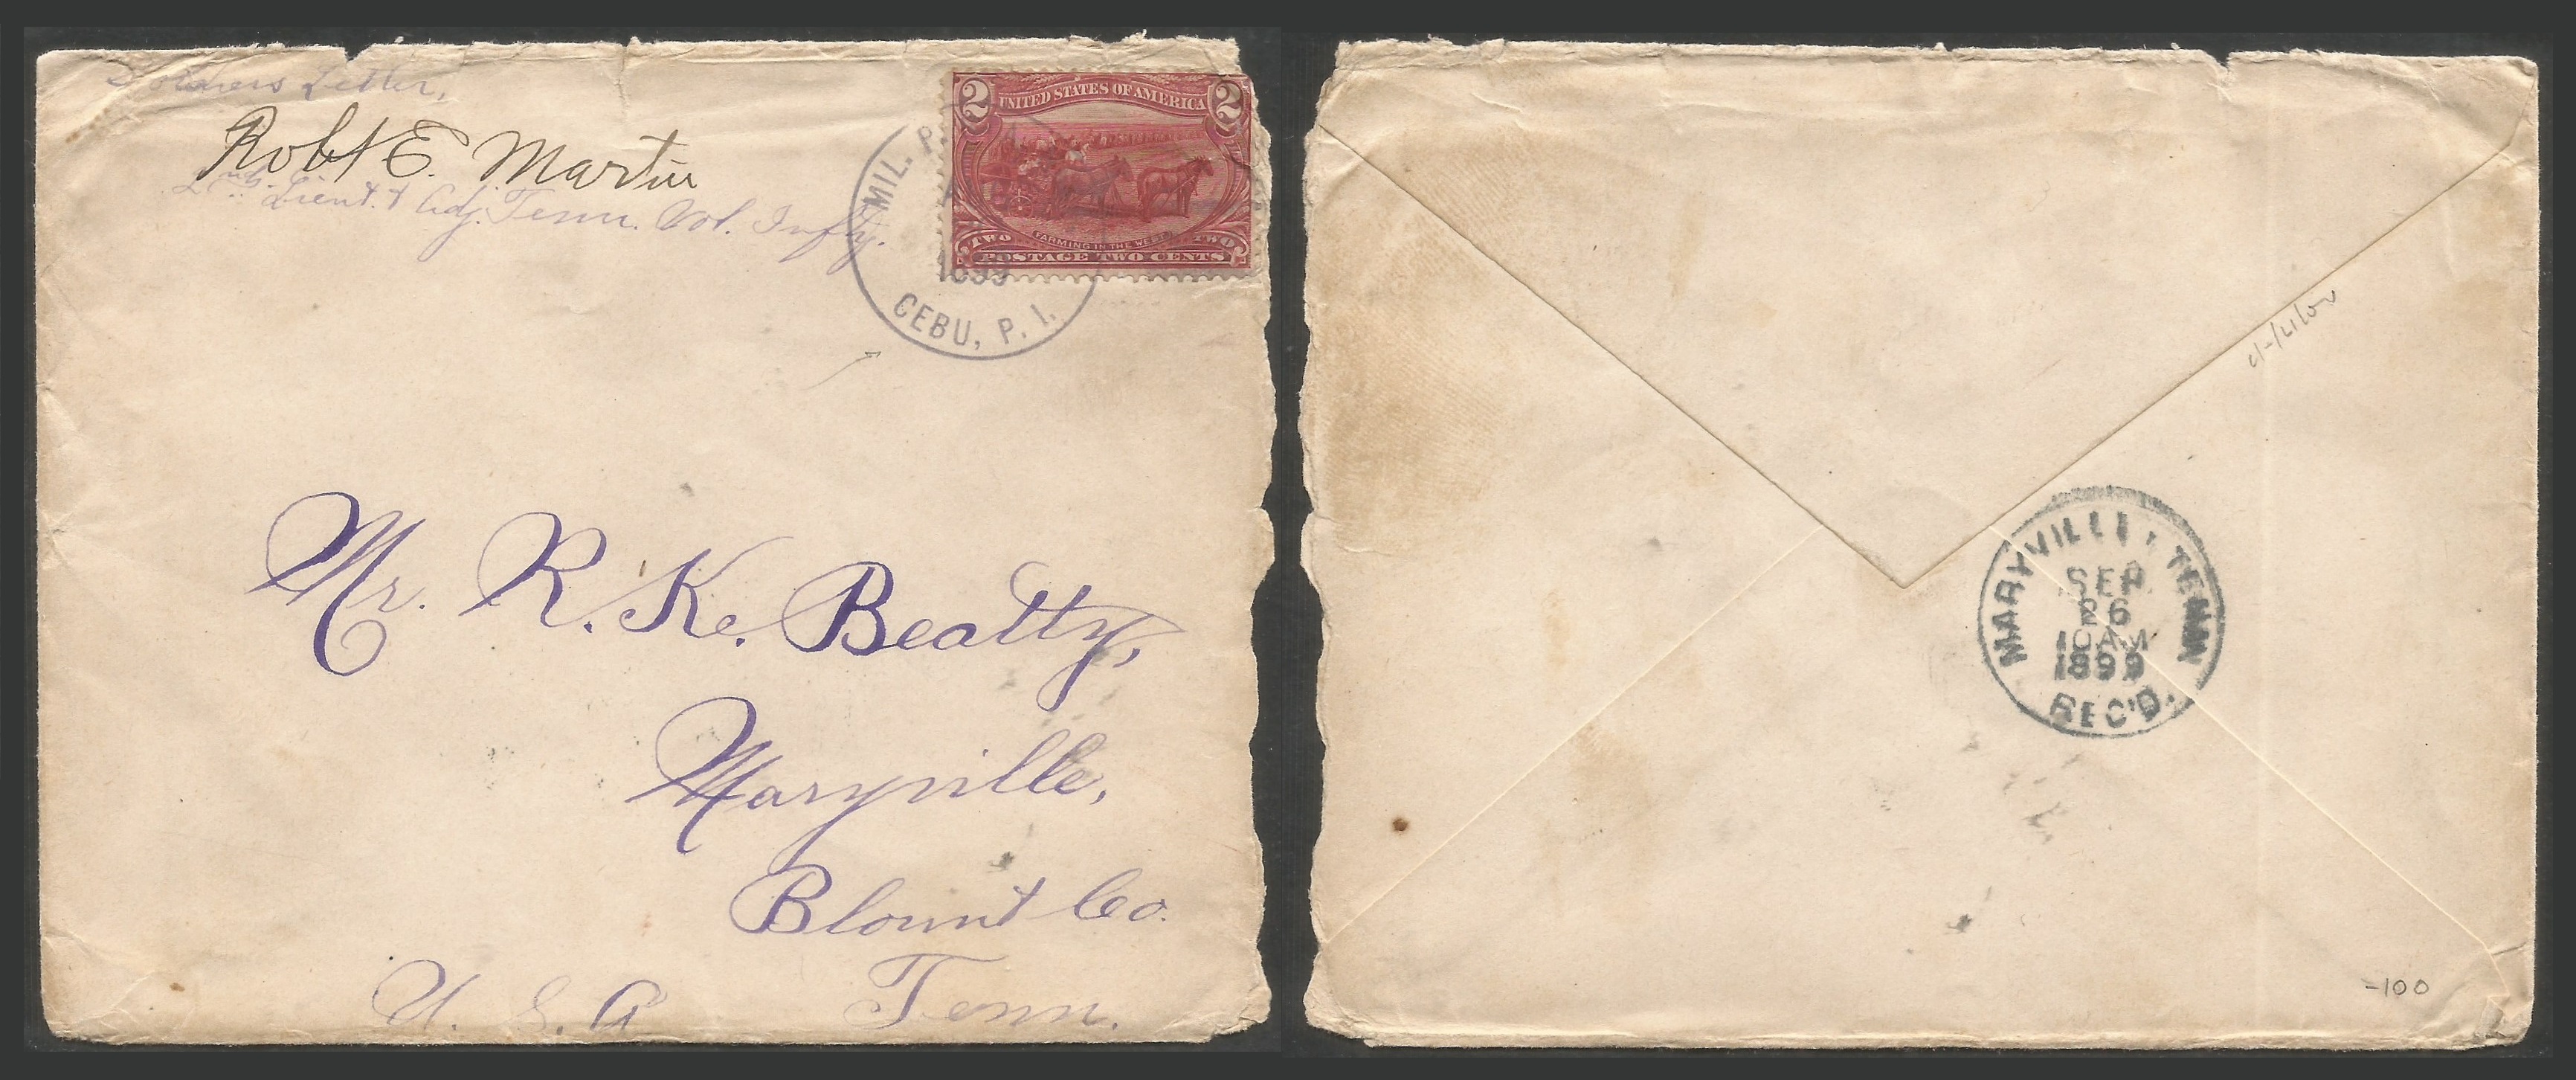 Soldiers Letter,
Robt E. Martin
2nd. Lieut. & Adj. Tenn. Vol. Infty.
MIL. P.
1899
CEBU, P. I.
2 UNITED STATES OF AMERICA 2
FARMING IN THE WEST
TWO TWO
POSTAGE TWO CENTS
Mr. R. K. Beatty,
Maryville,
Blount Co.
Tenn.
U. S. A
MARYVILLE, TENN
SEP
26
10AM
1899
REC'D.
-100